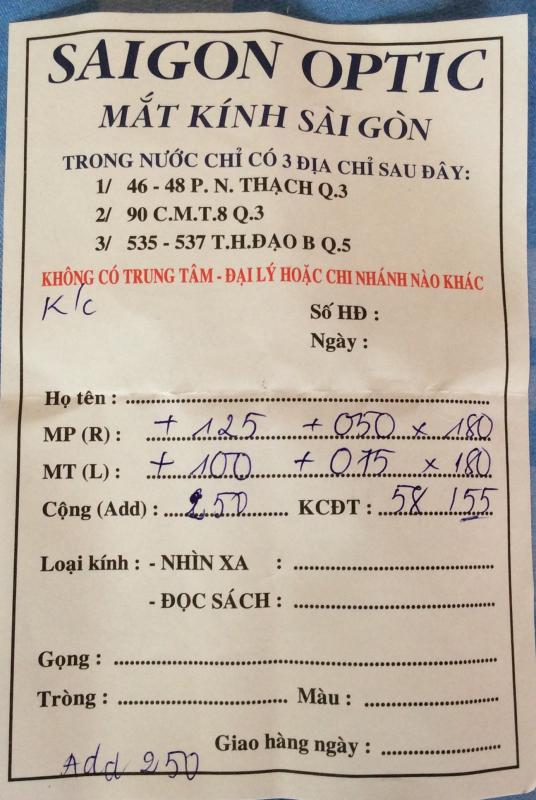 SAIGON OPTIC
MẮT KÍNH SÀI GÒN
TRONG NƯỚC CHỈ CÓ 3 ĐỊA CHỈ SAU ĐÂY:
1/ 46 - 48 P. N. THẠCH Q.3
2/ 90 C.M.T.8 Q.3
3/ 535 - 537 T.H.ĐẠO B Q.5
KHÔNG CÓ TRUNG TÂM - ĐẠI LÝ HOẶC CHI NHÁNH NÀO KHÁC
K/c
Số HĐ :
Ngày :
Họ tên :
MP (R) : + 125 + 050 x 180
MT (L) : + 100 + 075 x 180
Cộng (Add) : 250 KCĐT : 58 155
Loại kính : - NHÌN XA :
- ĐỌC SÁCH :
Gọng :
Tròng : Màu :
Giao hàng ngày :
Add 250